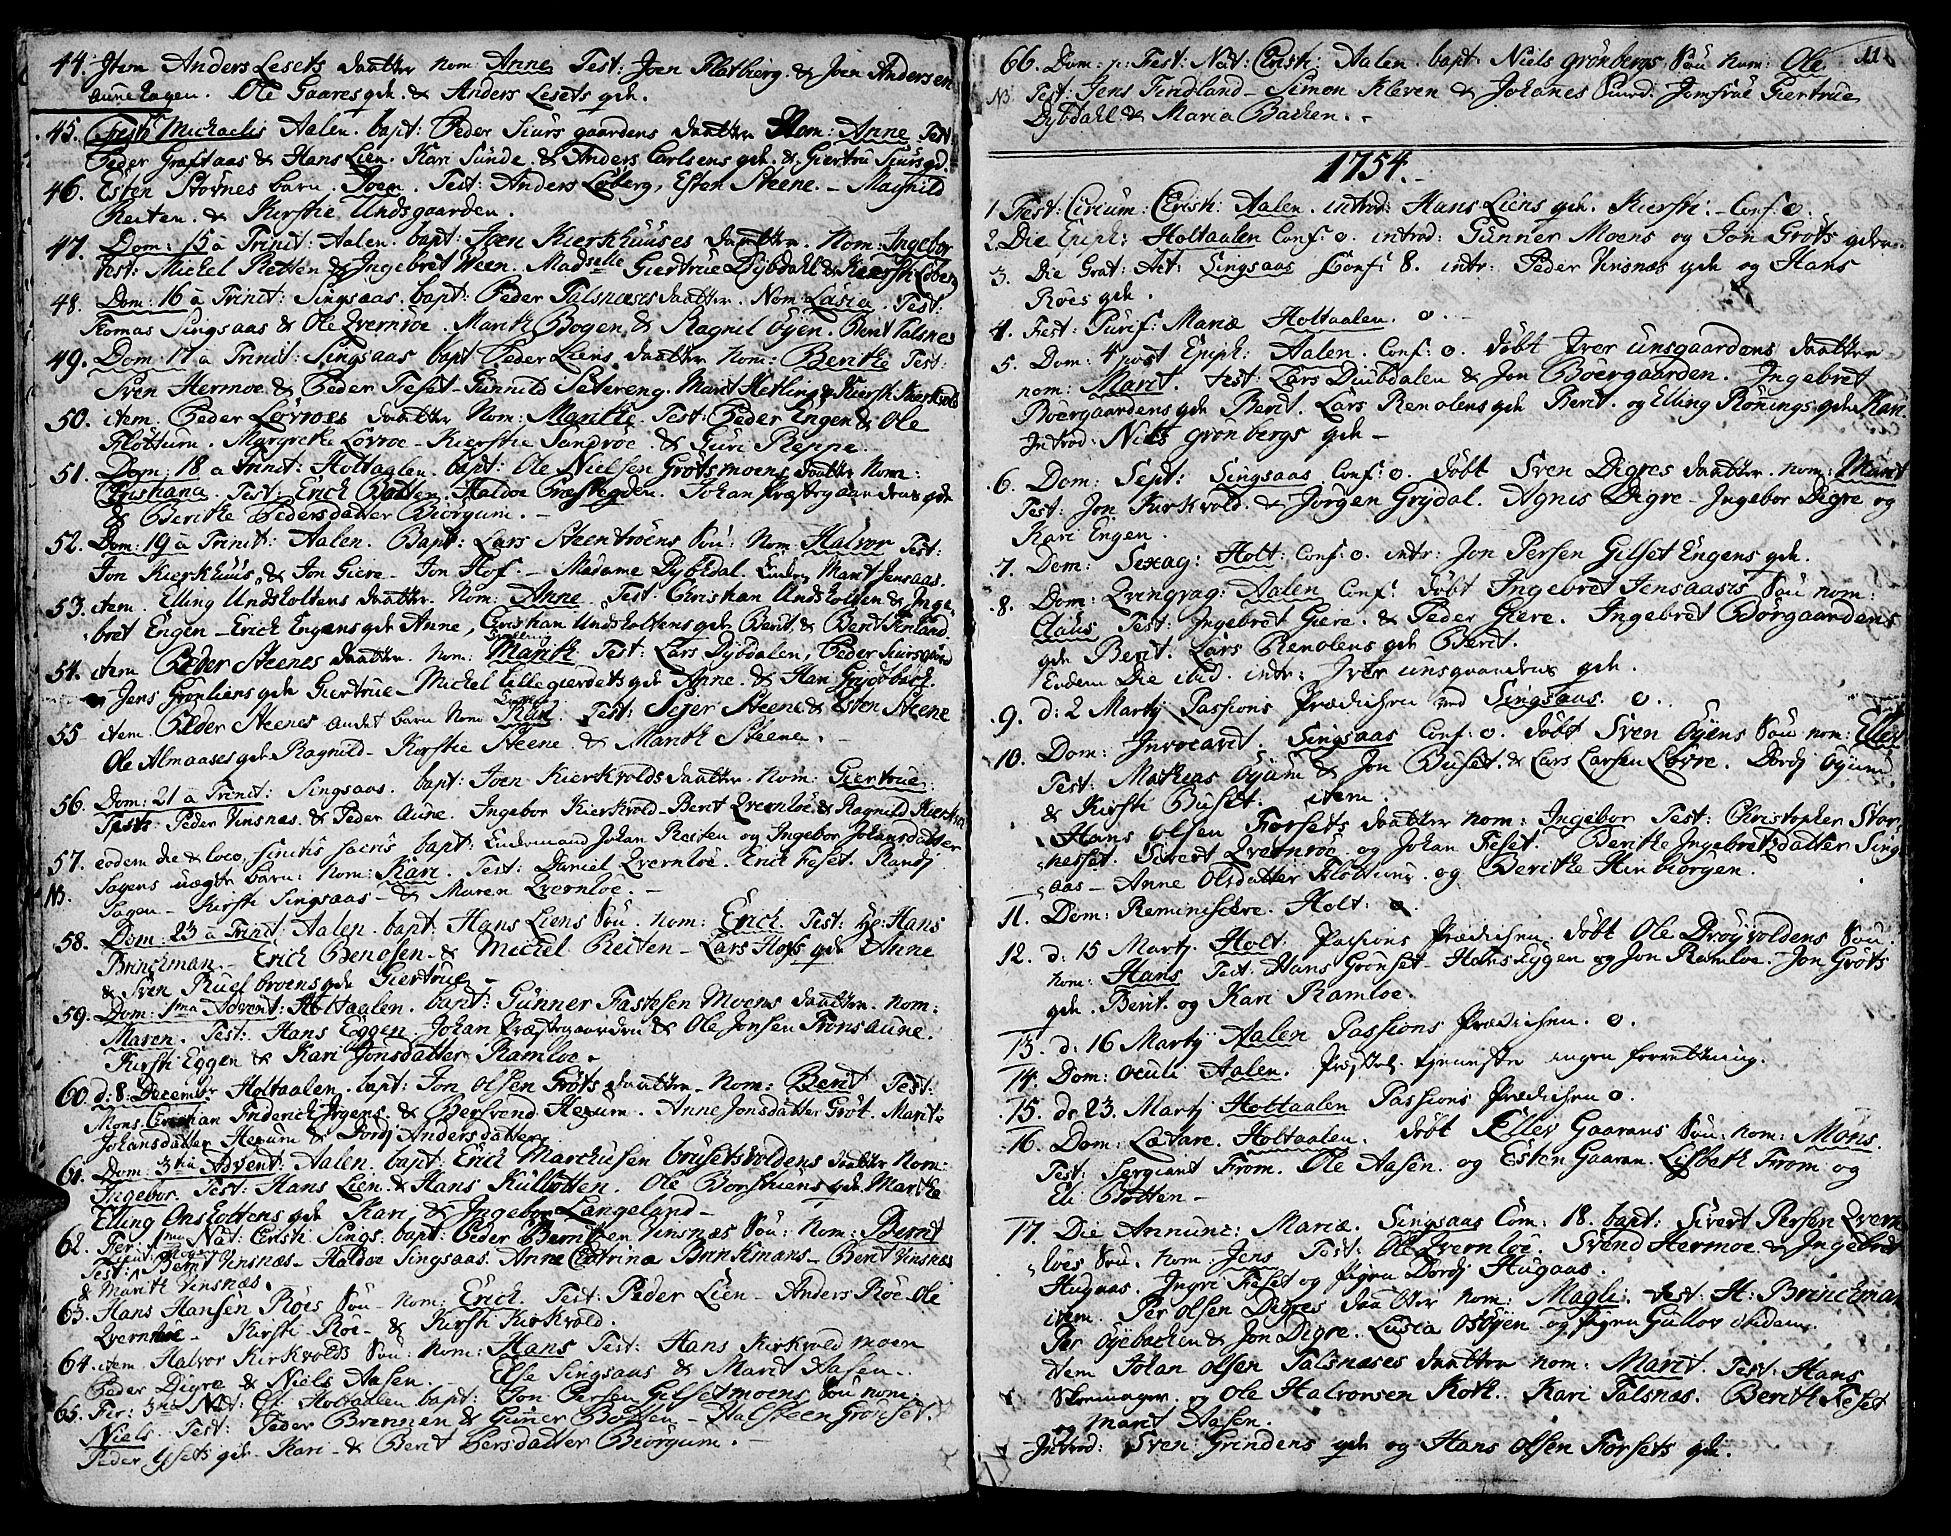 44. Item Anders Lesets daatter nom: Anne Test: Joen Flatbiørg & Joen Andersen
aunehagen. Ole Gaares gde. & Anders Lesets gde.
45. Fest: Michaelis Aalen. bapt: Peder Siurs gaardens daatter Nom: Anne Test:
Peder Graftaas & Hans Lien. Kari Sunde. & Anders Carlsens gde. & Giertru Siursgd.
46. Esten Stovnes barn. Joen. Test: Anders Løberg, Esten Steene. Magnild
Reiten. & Kirstie Undsgaarden.
47. Dom: 15 a Trinit: Aalen. bapt: Joen Kierkhuuses daatter. Nom: Ingebor
Test: Michel Retten & Ingebret Ween. Madselle Giertrue Dybdahl &
48. Dom: 16 a Trinit: Singsaas. bapt: Peder Talsnæses daatter. Nom: Lusia. Test:
Thomas Singsaas & Ole Qvernroe. Marit Bogen & Ragnil Øyen. Berit Talsnes
49. Dom: 17 a Trinit: Singsaas bapt Peder Liens daatter nom: Beritte Test:
Sven Hermoe & Peder Feset. Gunnild Setereng. Marit Hetling & Kiersti Kierkvold
50. item. Peder Løvroes daatter Nom: Maritte. Test: Peder Engen & Ole
Flottum. Margrete Løvroe. Kierstie Sandroe. & Guri Reppe.
51. Dom: 18 a Trinit: Holtaalen. bapt: Ole Nielsen Grøtsmoens daatter Nom:
Christiana. Test: Erich Botten. Haldoe Præstegden. Johan Præstegaardens gde
& Beritte Pedersdatter Biørgum.
52. Dom: 19 a Trinit: Aalen. Bapt: Lars Steentrøens Søn: Nom: Halvor Test:
Jon Kierkhuus, & Jon Giere. Jon Hof. Madame Dybedal. Marit Jensaas.
53. item. Elling Undsholtens daatter. Nom: Anne. Test: Christian Undsholten & Inge-
bret Engen. Erick Engens gde Anne, Christian Undsholtens gde Berit, & Berit Finland
54. item Peder Steenes daatter. nom: Marith Test: Lars Dybdalen, Peder Siursgaard
Jens Grønliens gde Giertrue. Michel Lillegierdets gde Anne. &
55 item. Peder Steenes andet barn nom Kari. Test: Sejer Steene & Esten Steene
Ole Almaases gde Ragnild. Kirstie Steene. & Marith Steene.
56. Dom: 21 a Trinit: Singsaas. bapt: Joen Kierkvolds daatter. nom: Giertrue
Test: Peder Vinsnæs. & Peder Aune. Ingebor Kierkvold. Berit Qvernloe & Ragnild
57. eodem die & loco, finitis sacris bapt: Johan Reiten og Ingebor Johansdatter
NB. Sagens uægte barn: nom: Kari. Test: Daniel Qvernloe. Erick Feset. Randi
Sagen. Kirsti Singsaas. & Maren Qvernloe.
58. Dom: 23 a Trinit: Aalen. bapt: Hans Liens Søn. nom: Erich. Test: Hr: Hans
Brinckman. Erich Benosen. & Michel Reiten. Lars Hofs gde Anne
& Sven Ruelbroens gde Giertrue.
59. Dom: 1ma Advent: Holtaalen. bapt: Gunner Fastesen Moens daatter. nom:
Maren. Test: Hans Eggen. Johan Præstegaarden & Ole Jonsen Fronsaune.
Kirsti Eggen & Kari Jonsdatter Ramloe.
60. d: 8. Decembr Holtaalen. bapt: Jon Olsen Grøts daatter. Nom: Berit Test:
Mons. Christian Friderich Irgens. & Bersvend Hexum. Anne Jonsdatter Grøt. Marit
Johansdatter Hexum & Dordj Andersdatter
61. Dom: 3tia Advent: Aalen. bapt: Erich Marchusen brusetsvoldens daatter nom:
Ingebor. Test: Hans Lien. & Hans Kulbotten. Ole Borstiens gde Marite
Elling Onsholtens gde Kari & Ingebor Langeland.
62. Fer: 1ma Nat: Christi Sings: bapt: Peder Berntsen Vinsnæs Søn: Nom: Bernt
Test: Bernt Vinsnæs. Haldoe Singsaas. Anne Catrina Brinkmans. Berit Vinsnæs
& Marith Vinsnæs.
63. Hans Hansen Røes Søn. nom: Erich Test: Peder Lien. Anders Røe. Ole
Qvernloe. Kirsti Roe. & Kirsti Kirkvold.
64. item. Halvor Kirkvolds Søn: nom: Hans Test: Hans Kirkvold moen
Peder Digre & Niels Aasen. Else Singsaas & Marit Aasen.
65. Fer: 3tia Nat: Ct. Holtaalen bapt: Jon Persen Gilsetmoens Søn nom:
Niels. Test: Peder Brennen & Guner Botten. Halsteen Grønset.
Peder Ysets gde. Kari. & Berit Persdatter Biørgum.
66. Dom: p: Fest: Nat: Christi: Aalen bapt: Niels Grønbergs Søn nom: Ole 11
NB Test: Jens Findland. Simon Kleven & Johanes Jomfrue Giertrue
Dybdahl & Maria Backen.
1754.
1 Fest: Circum: Christi: Aalen. introd: Hans Liens gde. Kiersti. Conf: o.
2. Die Epiph: Holtaalen Conf: o. introd: Gunner Moens og Jon Grøts gder.
3. Die Grat: Act: Singsaas Conf: 8. intr: Peder Vinsnæs gde og Hans
Røes gde.
4. Fest: Purif: Mariæ Holtaalen. o.
5. Dom: 4 post Epiph: Aalen. Conf: o. døbt Iver unsgaardens daatter
nom: Marit. test: Lars Diubdalen & Jon Boergaarden. Ingebret
Boergaardens gde Berit. Lars Renolens gde Berit. og Elling Rønings gde Kari
Introd: Niels Grønbergs gde.
6. Dom: Sept: Singsaas Conf: o. døbt Sven Digres daatter. nom: Marit
Test: Jon Kirkvold. & Jørgen Grydal. Agnis Digre. Ingebor Digre og
Kari Engen.
7. Dom: Sexag: Holt: Conf: o. intr: Jon Persen Gilset Engens gde.
8. Dom: Qvinqvag: Aalen Conf: døbt Ingebret Jensaases Søn nom:
Claus Test: Ingebret Giere. & Peder Giere. Ingebret Borgaardens
gde Berit. Lars Renolens gde Berit.
Eodem Die ibid. intr: Iver unsgaardens gde.
9. d: 2 Martij Passions Prædichen ved Singsaas. o.
10. Dom: Invocavit. Singsaas Conf: o. døbt Sven Øyens Søn nom: Ellev
Test: Mathias Øyum & Jon Buset & Lars Larsen Løvre. Dordj Øyum
& Kirsti Buset. item.
Hans Olsen Forsets daatter nom: Ingebor Test: Christopher Stor
nesset. Sivert Qvernroe og Johan Feset. Beritte Ingebretsdatter Sing
aas. Anne Olsdatter Flottum. og Beritte Hinbiørgen.
11. Dom: Reminiscere. Holt: o.
12. d: 15 Martij. Holt. Passions Prædichen. døbt Ole Drøyvoldens Søn.
nom: Hans Test: Hans Grønset. Hans Eggen og Jon Ramloe. Jon Grøts
gde. Berit. og Kari Ramloe.
13. d: 16 Martij Aalen Passions Prædichen. o.
14. Dom: Oculi Aalen. tjeneste ingen forretning.
15. d: 23. Martij Holtaalen Passions Prædichen o.
16. Dom: Lætare. Holtaalen. døbt Ellev Gaarans Søn: nom: Mons.
Test: Sergiant From. Ole Aasen. og Esten Gaaran. Lisbeth From og
Eli Botten.
17. Die Annunc: Mariæ. Singsaas Com: 18. bapt: Sivert Persen Qvern
loes Søn. nom Jens Test: Ole Qvernloe. Svend Hermoe & Ingebret
Hugaas. Ingri Feset og pigen Dordj Hugaas.
item. Per Olsen Digres daatter nom: Magli. test: H: Brinckman
Per Øyebacken & Jon Digre. Lusia Osøyen og pigen Gullov ibidem.
item Johan Olsen Talsnæses daatter nom: Marit. Test: Hans
Skomager. og Ole Halvorsen Koth. Kari Talsnæs. Berith Feset
og Marit Aasen.
Introd: Sven Grindens gde og Hans Olsen Forsets gde.